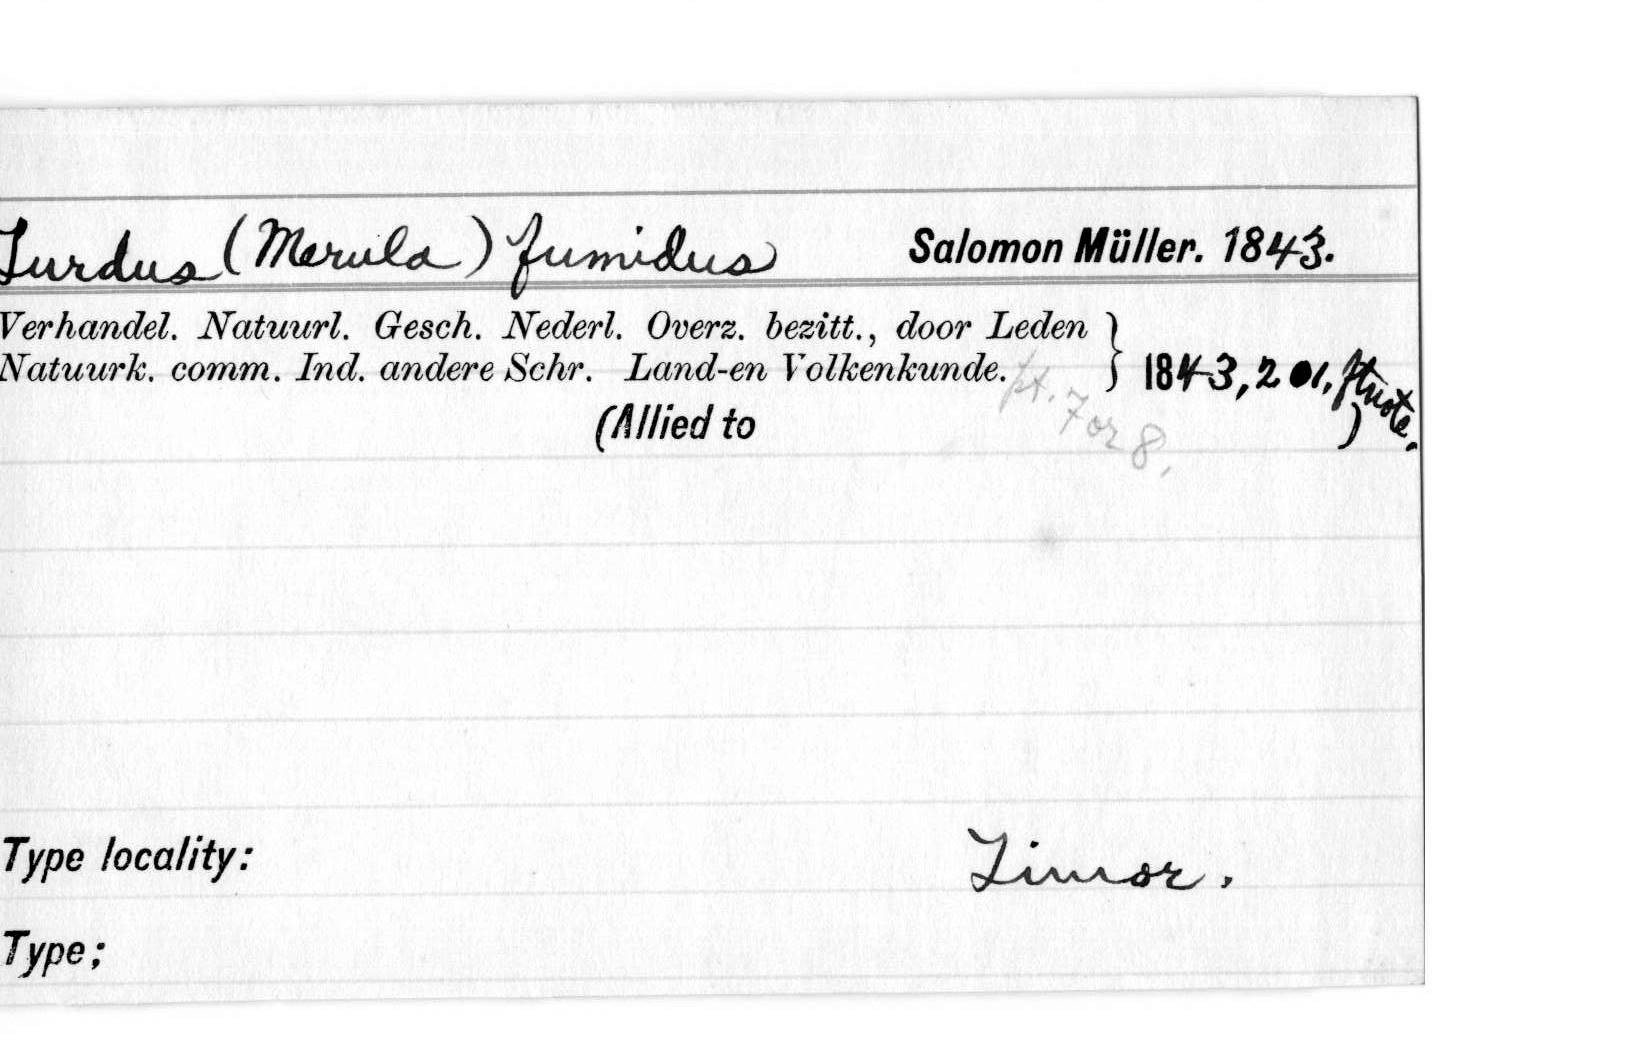 Turdus (Merula) fumidus Salomon Müller. 1843.
Verhandel. Natuurl. Gesch. Nederl. Overz. bezitt., door Leden
Natuurk. comm. Ind. andere Schr. Land-en Volkenkunde. } 1843, 201, ftnote.
pt. 7 or 8.
(Allied to )
Type locality: Timor.
Type;